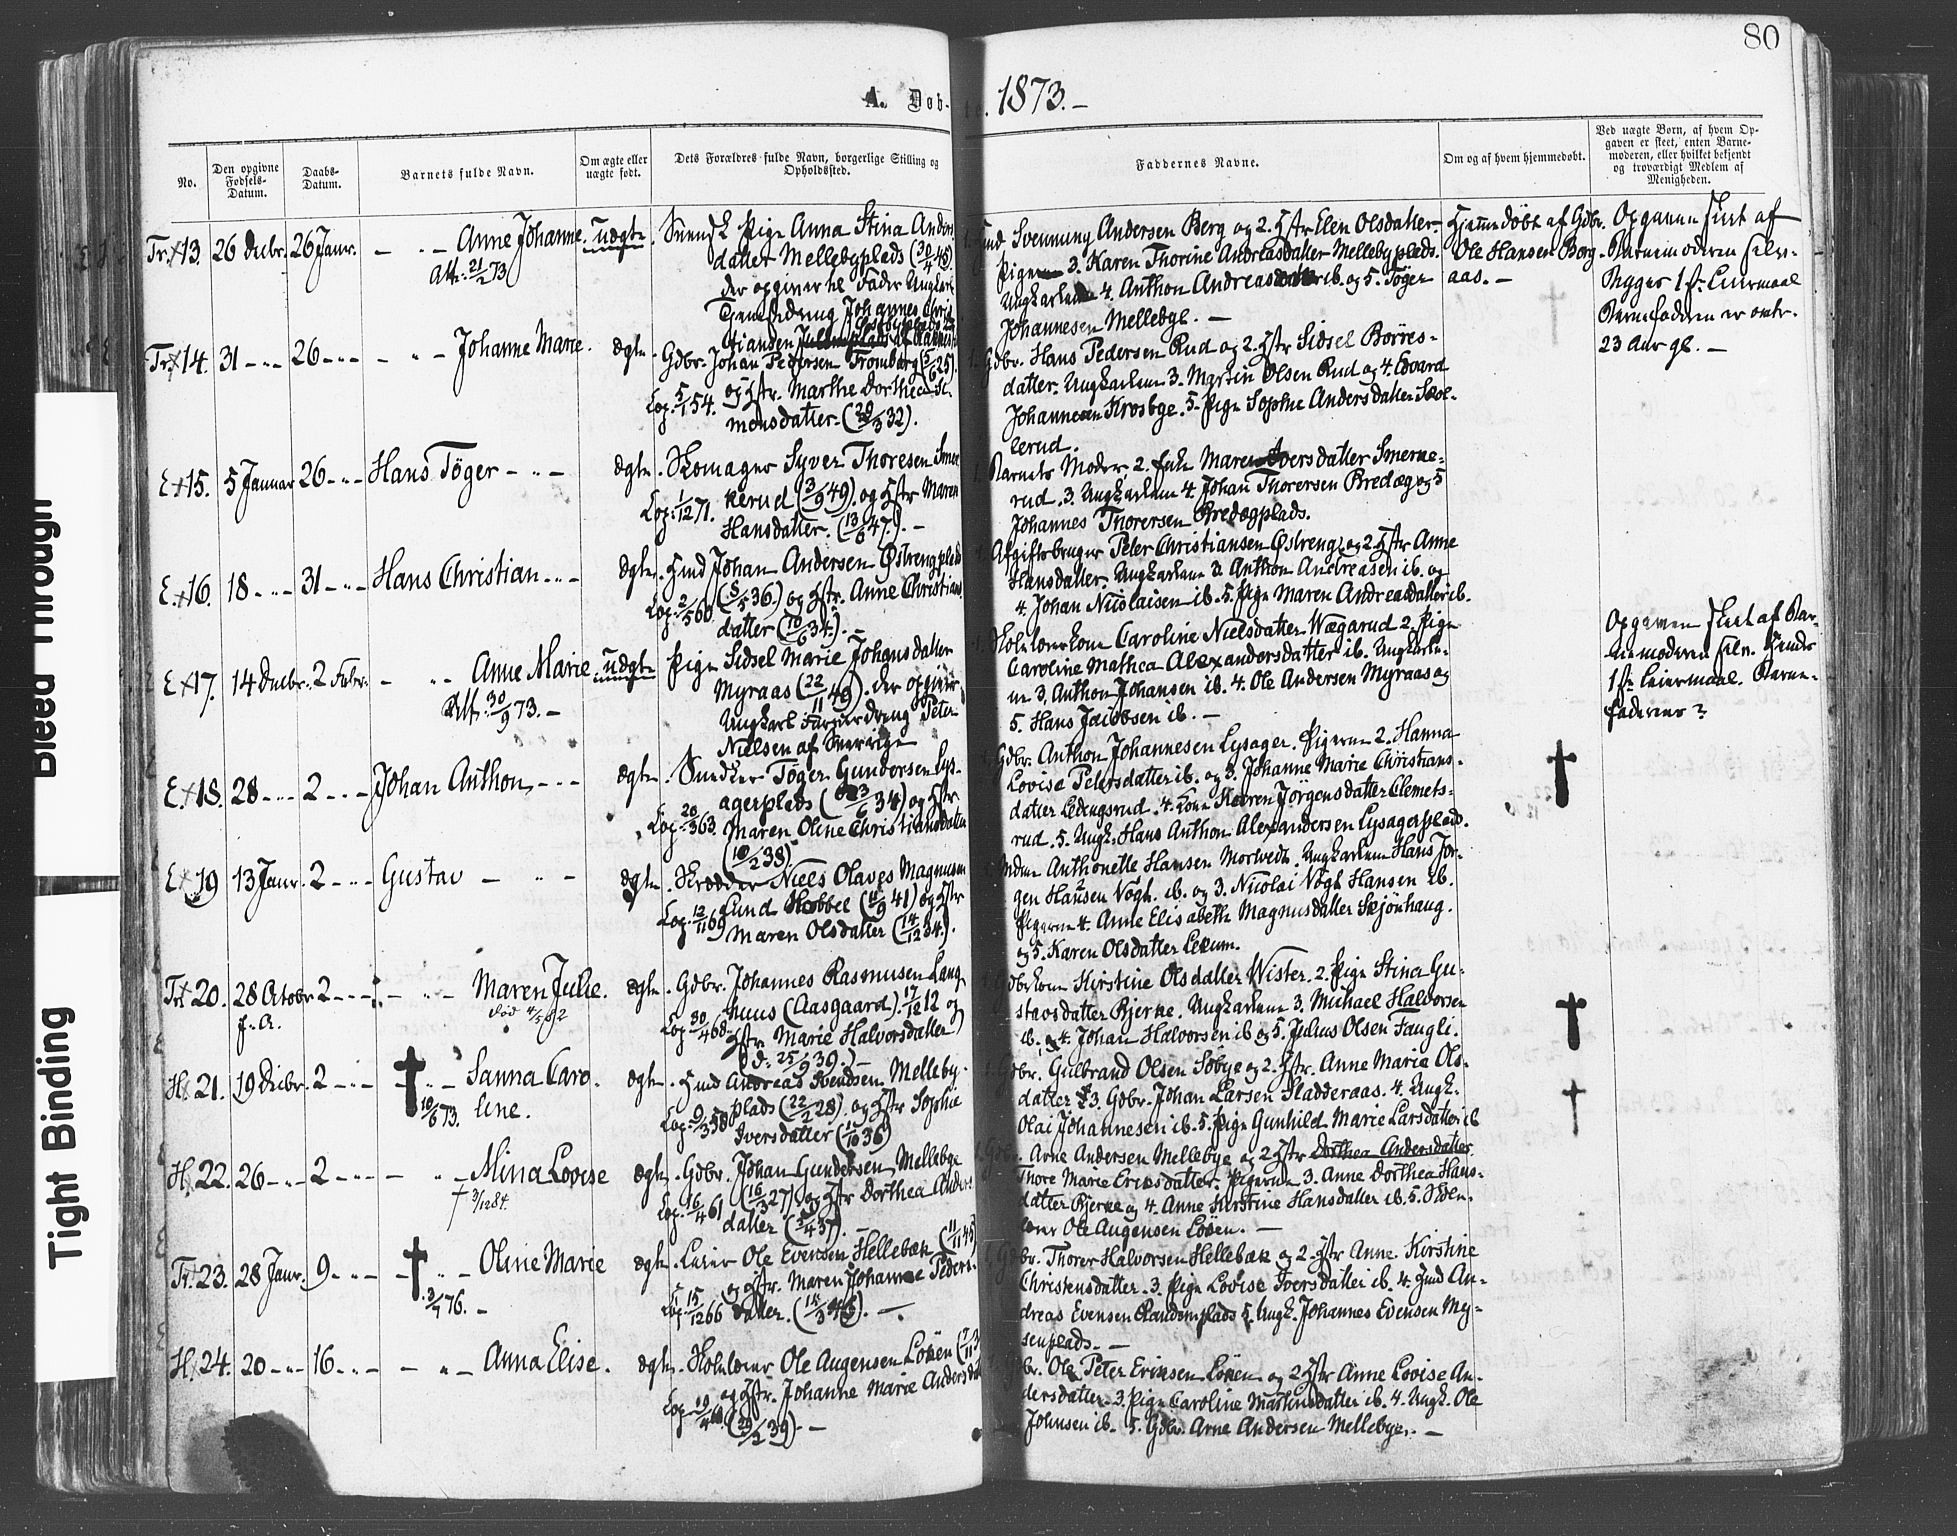 80
A. Døb- te. 1873.-
No.
Den opgivne Fødsels-Datum.
Daabs-Datum.
Barnets fulde Navn.
Om ægte eller uægte født.
Dets Forældres fulde Navn, borgerlige Stilling og Opholdssted.
Faddernes Navne.
Om og af hvem hjemmedøbt.
Ved uægte Børn, af hvem Op-
gaven er skeet, enten Barne-
moderen, eller hvilket bekjendt
og troværdigt Medlem af
Menigheden.
Tr. 13. 26 Decbr. 26 Janr. - " - Anne Johanne. uægte.
Att: 21/2 73
Svensk Pige Anna Stina Anders
datter Mellebyplads (30/4 45)
der opgiver til Fader Ungkarl
Tjenestedreng Johannes Chris
tiansen
Svenning Andersen Berg og 2. Hstr Ellen Olsdatter.
3. Karen Thorine Andreasdatter Mellebyplads.
Ungkarlene 4. Anthon Andreas ib. og 5. Töger
Johannesen Mellebye. -
Hjemmedöbt af Gdbr.
Ole Hansen Borg-
aas. -
Opgaven skeet af
Barnemoderen selv.
Begges 1ste Leiermaal
Barnefaderen er omtr.
23 Aar gl. -
Tr. 14. 31 - " - 26 - " - - " - Johanne Marie. ægte.
Gdbr. Johan Pedersen Tromborg (5/6 25).
Cop. 5/1 54. og Hstr. Marthe Dorthea Si
monsdatter. (20/3 32).
1. Gdbr. Hans Pedersen Rud og 2. Hstr Sidsel Börres-
datter. Ungkarlene 3. Martin Olsen Rud og 4. Edvard
Johannesen Krosbye. 5. Pige Sophie Andersdatter Skol-
lerud.
E. 15. 5 Januar 26 - " - Hans Töger - " - ægte.
Skomager Syver Thoresen Smer
Cop: 1/12 71. kerud (3/9 49). og Hstr Maren
Hansdatter. (13/6 47). -
1. Barnets Moder 2. Enke Maren Iversdatter Smerke-
rud. 3. Ungkarlene 4. Johan Thorersen Bredæg og 5
Johannes Thorersen Bredægplads.
E. 16. 18 - " - 31 - " - Hans Christian - " - ægte.
Hmd Johan Andersen Østrengplads
Cop. 2/5 60. (5/5 36.) og Hstr. Anne Christians
datter (10/6 34.). -
Afgiftsbruger Peter Christiansen Østreng, og 2. Hstr Anne
Hansdatter. Ungkarlene 3. Anthon Andreasen ib. og
4. Johan Nicolaisen ib. 5. Pige Maren Andreasdatter ib.
E. 17. 14 Decbr. 2 Febr. - " - Anne Marie uægte
Att: 30/9 73. -
Pige Sidsel Marie Johansdatter
Myraas (22/11 49). der opgiver
Ungkarl Farverdreng Peter
Nielsen af Sverrige
1. Skolelærerkone Caroline Nielsdatter Wægarud 2. Pige
Caroline Mathea Alexandersdatter ib. Ungkarle-
ne 3. Anthon Johansen ib. 4. Ole Andersen Myraas og
5. Hans Jacobsen ib. -
Opgaven skeet af Bar-
nemoderen selv. Hendes
1ste Leiermaal. Barne-
faderens ?
E. 18. 28 - " - 2 - " - Johan Anthon - " - ægte.
Snedker Töger Gundersen Lys-
agerplads (3/6 34) og Hstr
Cop. 20/3 63 Maren Oline Christiansdatter
(10/2 38).
Gdbr. Anthon Johannesen Lysager. Pigerne 2. Hanna
Lovise Petersdatter ib. og 3. Johanne Marie Christians-
datter Ledengsrud. 4. Kone Karen Jörgensdatter Clemets-
rud. 5. Ungk. Hans Anthon Alexandersen Lysagerplads.
E. 19 13 Janr. 2 - " - Gustav - " - ægte.
Skrædder Niels Olaves Magnusen
Cop. 12/11 69 Lund Hobbel (11/9 41) og Hstr
Maren Olsdatter (14/12 34.).
Anthonette Hansen Morvedt. Ungkarlene Hans Jör-
gen Hansen Vogt. ib. og 3. Nicolai Vogt Hansen ib.
Pigerne 4. Anne Elisabeth Magnusdatter Skjönhaug.
og 5. Karen Olsdatter Lekum.
Tr. 20. 28 Octobr f.A. 2 - " - - " - Maren Julie. ægte.
død 4/5 82
Gdbr. Johannes Rasmusen Lang
nuus (Aasgaard). 17/12 12 og
Cop. 30/4 68. Hstr Marie Halvorsdatter
(d. 25/9 39.) -
Gdbrkone Kirstine Olsdatter Wister. 2. Pige Stina Gu-
stavsdatter Bjerke. Ungkarlene 3. Michael Haldorsen
ib. og 4. Johan Halvorsen ib og 5. Julius Olsen Faugli.
H. 21. 19 Decbr. 2 - " - - " - Sanna Caro-
10/6 73. line. ægte.
Hmd Andreas Svendsen Melleby-
Cop. 9/3 58 plads (22/2 28). og Hstr Sophie
Iversdatter (1/10 36)
1. Gdbr. Gulbrand Olsen Söbye og 2. Hstr. Anne Marie Ols-
datter 3. Gdbr. Johan Larsen Sladderaas. 4. Ungk.
Olai Johannesen ib. 5. Pige Gunhild Marie Larsdatter ib
H. 22. 26 - " - 2 - " - - " - Mina Lovise ægte.
† 3/12 84.
Gdbr. Johan Gundersen Mellebye
Cop. 16/4 61 (16/3 27) og Hstr Dorthea Anders
datter (5/4 37).
1. Gdbr. Arne Andersen Mellebye og 2 Hstr Dorthea Andersdatter
Thore Marie Eriksdatter. Pigerne 3. Anne Dorthea Hans-
datter Bjerke og 4. Anne Kirstine Hansdatter ib. 5. Skole-
lærer Ole Augensen Löken. -
Tr. 23. 28 Janr. 9 - " - - " - Oline Marie ægte.
3/7 76. -
Leier Ole Evensen Hellebæk (11/11 43)
Cop. 15/12 66 og Hstr. Maren Johanne Peders-
datter. (14/3 46). -
1. Gdbr. Thorer Halvorsen Hellebæk og 2. Hstr Anne Kirstine
Christensdatter. 3. Pige Lovise Iversdatter ib. 4. Hmd An-
dreas Evensen Randemplads 5. Ungk. Johannes Evensen My-
senplads. -
H. 24. 20 - " - 16 - " - - " - Anna Elise. ægte.
Skolelærer Ole Augensen Löken
Cop. 19/4 60. og Hstr. Johanne Marie Andersdat
(29/2 39). -
Ole Peter Eriksen Löken og 2 Hstr Anne Lovise An-
dersdatter. 3. Pige Caroline Martinsdatter ib. 4. Ungk. Ole
Johnsen ib. 5. Gdbr. Arne Andersen Mellebye. -
Bleed Through
Tight Binding